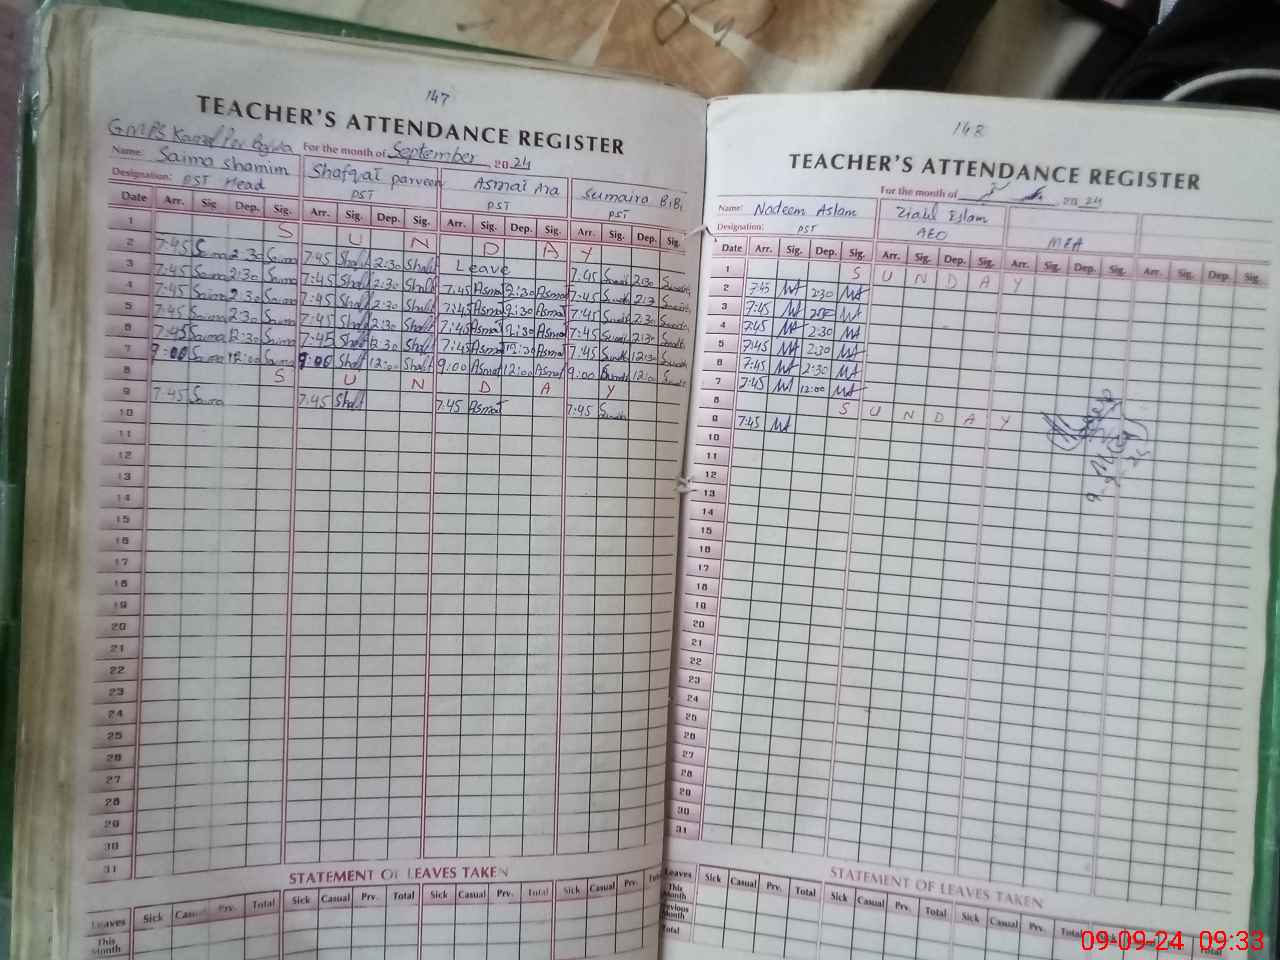 147
TEACHER'S ATTENDANCE REGISTER
GMPS
For the month of September 2024
Name: Saima shamim Shafqat parveen Asmat Ara Sumaira BiBi
Designation: PST Head PST PST PST
Date Arr. Sig. Dep. Sig. Arr. Sig. Dep. Sig. Arr. Sig. Dep. Sig. Arr. Sig. Dep. Sig.
1 S U N D A Y
2 7:45 Saima 2:30 Saima 7:45 Shaf 2:30 Shaf Leave 7:45 2:30
3 7:45 Saima 2:30 Saima 7:45 Shaf 2:30 Shaf 7:45 Asmat 2:30 Asmat 7:45
4 7:45 Saima 2:30 Saima 7:45 Shaf 2:30 Shaf 7:45 Asmat 2:30 Asmat 7:45 2:30
5 7:45 Saima 2:30 Saima 7:45 Shaf 2:30 Shaf 7:45 Asmat 12:30 Asmat 7:45 2:30
6 7:45 Saima 12:30 Saima 7:45 Shaf 12:30 Shaf 7:45 Asmat 12:30 Asmat 7:45 12:30
7 9:00 Saima 12:00 Saima 9:00 Shaf 12:00 Shaf 9:00 Asmat 12:00 Asmat 9:00 12:00
8 S U N D A Y
9 7:45 Saima 7:45 Shaf 7:45 Asmat 7:45
10
11
12
13
14
15
16
17
18
19
20
21
22
23
24
25
26
27
28
29
30
31
STATEMENT OF LEAVES TAKEN
Leaves Sick Casual Prv. Total Sick Casual Prv. Total Sick Casual Prv. Total Sick Casual Prv.
This Month
148
TEACHER'S ATTENDANCE REGISTER
For the month of 2024
Name: Nadeem Aslam Ziaul Eslam
Designation: PST AEO MEA
Date Arr. Sig. Dep. Sig. Arr. Sig. Dep. Sig. Arr. Sig. Dep. Sig. Arr. Sig. Dep. Sig.
1 S U N D A Y
2 7:45 NA 2:30 NA
3 7:45 NA NA
4 7:45 NA 2:30 NA
5 7:45 NA 2:30 NA
6 7:45 NA 2:30 NA
7 7:45 NA 12:00 NA
8 S U N D A Y
9 7:45 NA
10
11
12
13
14
15
16
17
18
19
20
21
22
23
24
25
26
27
28
29
30
31
9-9-24
STATEMENT OF LEAVES TAKEN
Leaves Sick Casual Prv. Total Sick Casual Prv. Total Sick Casual Prv. Total Sick Total
This Month
Previous Month
Total
09-09-24 09:33